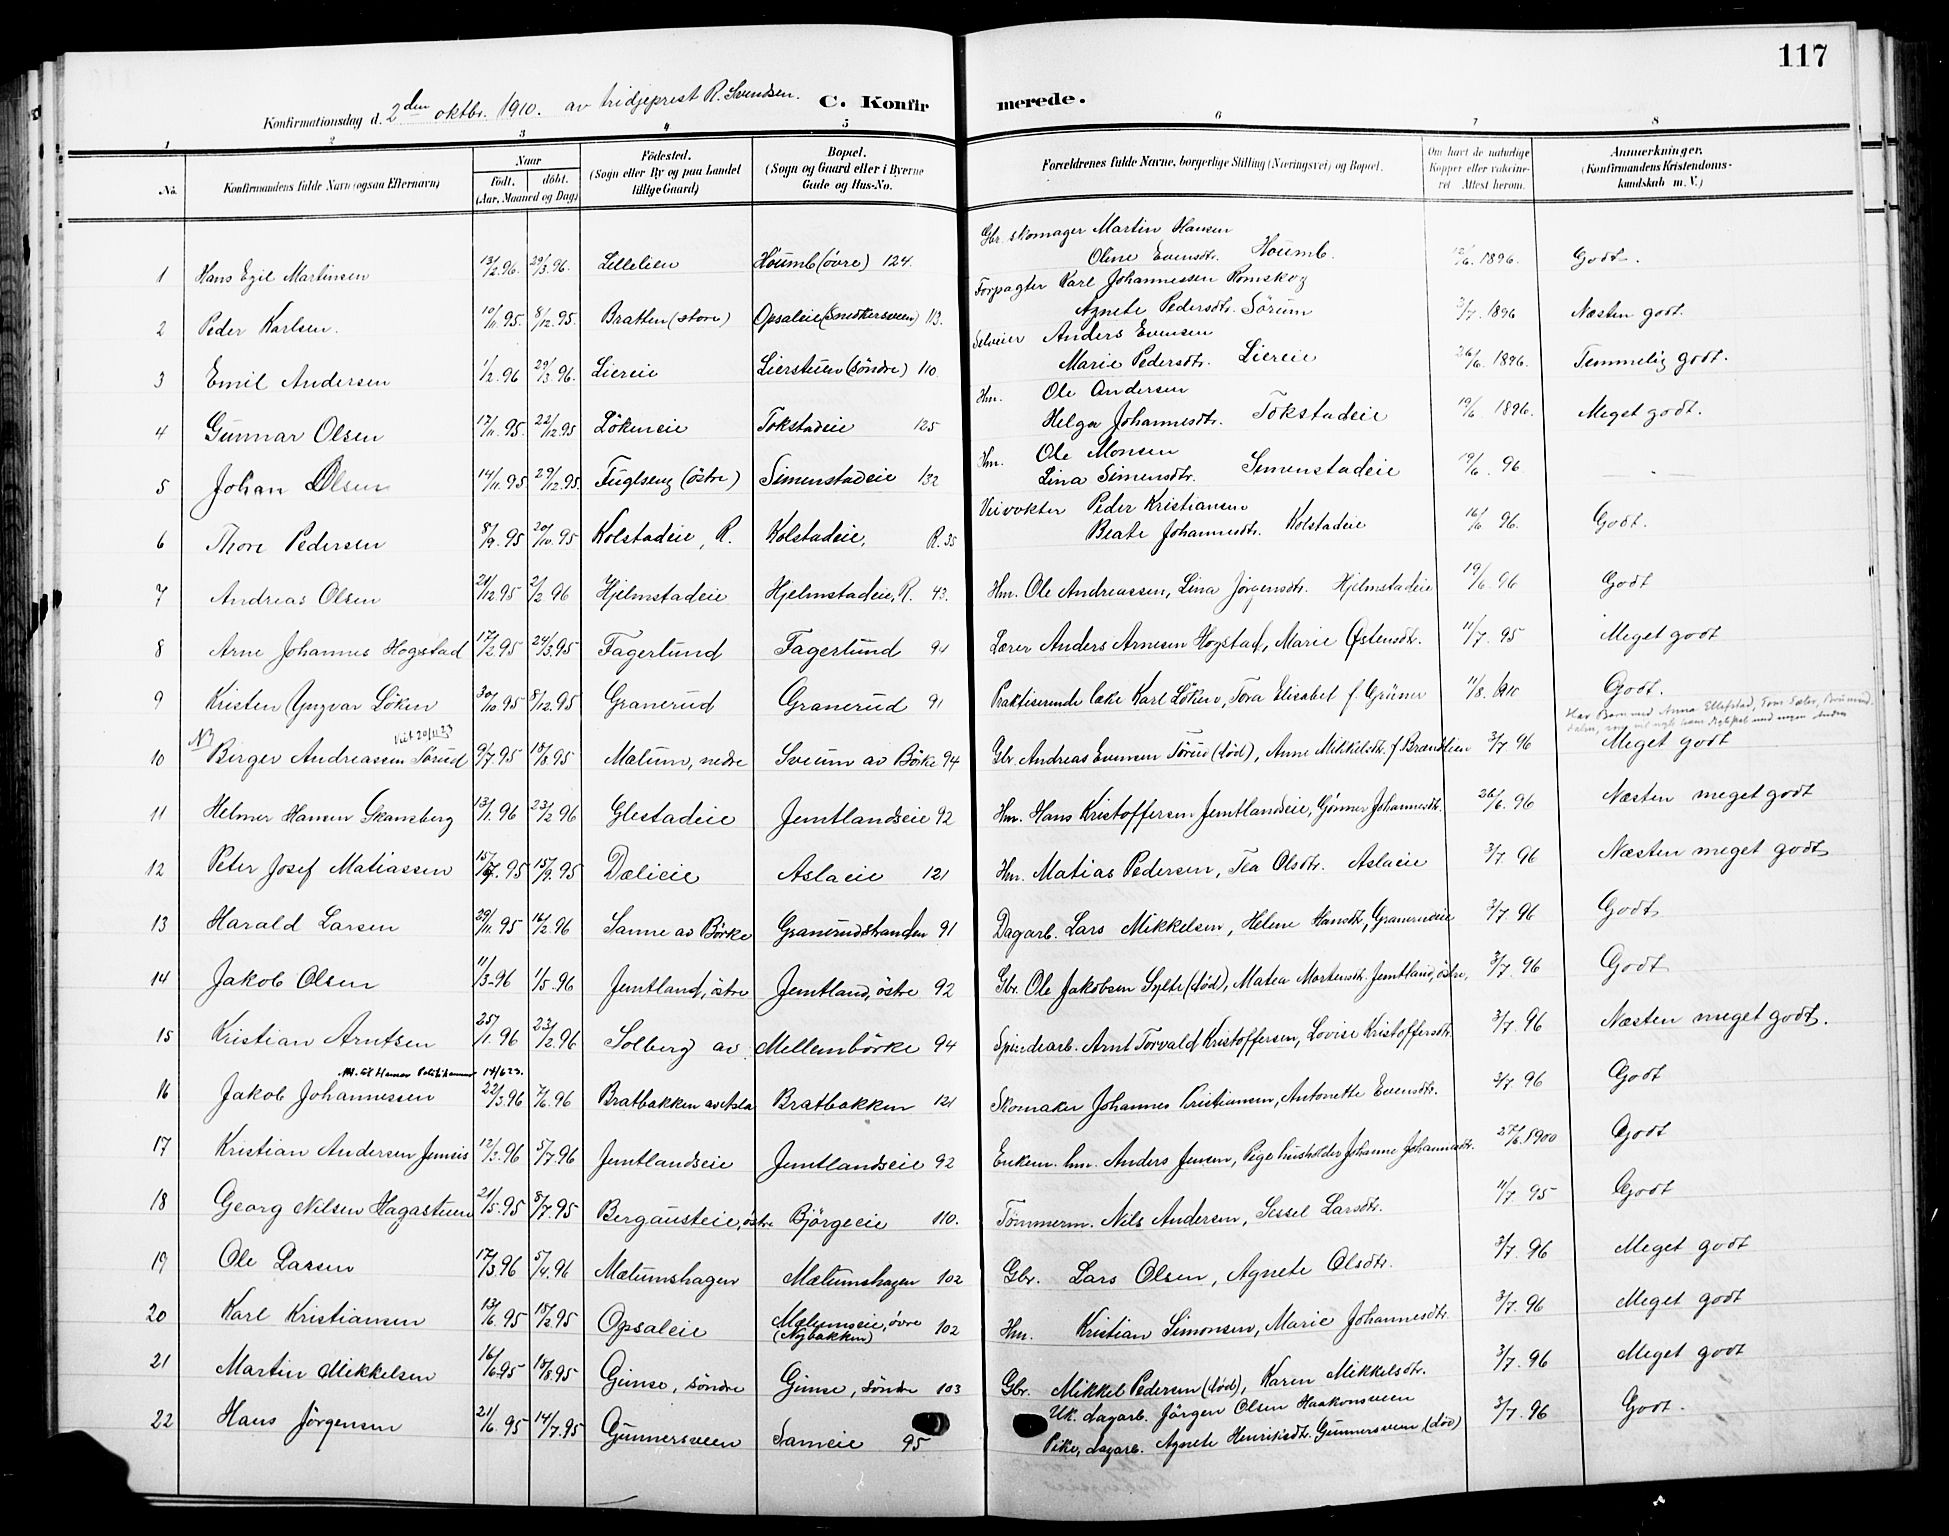 117
Konfirmationsdag d. 2den oktbr. 1910. av tridjeprest R. Svendsen. C. Konfirmerede.
1 2 3 4 5 6 7 8
No. Konfirmandens fulde Navn (ogsaa Efternavn) Naar Födt. döbt. (Aar, Maaned og Dag) Födested. (Sogn eller By og paa Landet tillige Gaard) Bopæl. (Sogn og Gaard eller i Byerne Gade og Hus-No. Forældrenes fulde Navne, borgerlige Stilling (Næringsvei) og Bopæl. Om havt de naturlige Kopper eller vaccineret. Attest herom. Anmerkninger. (Konfirmandens Kristendomskundskab m. V.)
1 Hans Egil Martinsen 13/2 96. 29/3 96. Lillelien Houmb (övre) 124. Gbr. skomager Martin Hansen Oline Evensdtr. Houmb. 12/6. 1896. Godt.
2 Peder Karlsen. 10/11. 95. 8/12. 95. Bratten (store) Opsaleie (Snedkersveen) 113. Forpagter Karl Johannessen Romskog Agnete Pedersdtr. Sörum 3/7. 1896 Næsten godt.
3 Emil Andersen 1/2. 96 29/3. 96. Liereie Lierstuen (söndre) 110. Selveier Anders Evensen Marie Pedersdtr. Liereie 26/6. 1896. Temmelig godt.
4 Gunnar Olsen 17/11. 95. 22/12. 95 Lökeneie Tokstadeie 125 Hm. Ole Andersen Helga Johannesdtr. Tokstadeie 19/6 1896. Meget godt.
5 Johan Olsen 14/11. 95 29/12. 95. Fuglseng (östre) Simenstadeie 132 Hm. Ole Monsen Lina Simensdtr. Simenstadeie 19/6. 96. -
6 Thore Pedersen 8/9. 95 20/10. 95 Kolstadeie, R. Kolstadeie, R. 35 Veivokter Peder Kristiansen Beate Johannesdtr. Kolstadeie 16/6 96. Godt.
7 Andreas Olsen 21/12 95 2/2 96 Hjelmstadeie Hjelmstadeie, R. 43. Hm. Ole Andreassen, Lina Jörgensdtr. Hjelmstadeie 19/6 96 Godt
8 Arne Johannes Hogstad 17/2. 95 24/3. 95 Fagerlund Fagerlund 94 Lærer Anders Arnesen Hogstad, Marie Østensdtr. 11/7. 95 Meget godt
9 Kristen Yngvar Löken 30/10 95 8/12. 95 Granerud Granerud 91 Praktiserende læke Karl Löken, Tora Elisabet f. Grüner 11/8. 1910 Godt.
Har Barn med Anna Ellefstad,
10 Birger Andreassen Törud 9/7. 95 18/8. 95 Mælum, nedre Sveum av Börke 94 Gbr. Andreas Evensen Törud (död), Anne Mikkelsdtr. f. Brændlien 3/7 96 Meget godt
11 Helmer Hansen Skansberg 13/1. 96 23/2 96 Glestadeie Jemtlandseie 92 Hm. Hans Kristoffersen Jemtlandseie, Gönner Johannesdtr. 26/6. 96 Næsten meget godt
12 Peter Josef Matiassen 15/7. 95 15/9. 95 Dælieie Aslaeie 121 Hm. Matias Pedersen, Tea Olsdtr. Aslaeie 3/7. 96 Næsten meget godt
13 Harald Larsen 29/11. 95 16/2. 96 Sanne av Börke Granerudstranden 91 Dagarb. Lars Mikkelsen, Helene Hansdtr, Granerudeie 3/7 96 Godt
14 Jakob Olsen 11/3-96 1/5. 96 Jemtland, östre Jemtland, östre 92 Gbr. Ole Jakobsen Sylte (död), Matea Mortensdtr. Jemtland, östre, 3/7. 96 Godt
15 Kristian Arntsen 25/1. 96 23/2. 96 Solberg av Mellembörke 94 Spindearb. Arnt Torvald Kristoffersen, Lovise Kristoffersdtr 3/7. 96 Næsten meget godt.
Att. til Hamar Politikammer 14/6 23.
16 Jakob Johannessen 22/3. 96 7/6. 96 Bratbakken av Asla Bratbakken 121 Skomaker Johannes Kristiansen, Antonette Evensdtr. 3/7 96 Godt
17 Kristian Andersen Jemeis 12/3. 96 5/7. 96 Jemtlandseie Jemtlandseie 92 Enkem. hm. Anders Jensen, Pige husholder Johanne Johannesdtr. 27/6. 1900 Godt
18 Georg Nilsen Hagastuen 21/5. 95 8/7. 95 Bergausteie, östre Björgeeie 110. Tömmerm. Nils Andersen, Sissel Larsdtr. 11/7. 95 Godt
19 Ole Larsen 17/3. 96 5/4. 96 Mælumshagen Mælumshagen 102 Gbr. Lars Olsen, Agnete Olsdtr. 3/7. 96 Meget godt
20 Karl Kristiansen 13/6. 95 15/2. 95 Opsaleie Mælumseie, övre (Nybakken) 102 Hm. Kristian Simonsen, Marie Johannesdtr. 3/7. 96 Meget godt
21 Martin Mikkelsen 16/6 95 18/8. 95 Gimse, söndre Gimse, söndre 103 Gbr. Mikkel Pedersen (död), Karen Mikkelsdtr. 3/7. 96 Meget godt
22 Hans Jörgensen 21/6. 95 14/7. 95 Gunnersveen Sameie 95 Uk. dagarb. Jörgen Olsen Haakonsveen Pike, dagarb. Agnete Henriksdtr. Gunnersveen (död) 3/7. 96 Godt.